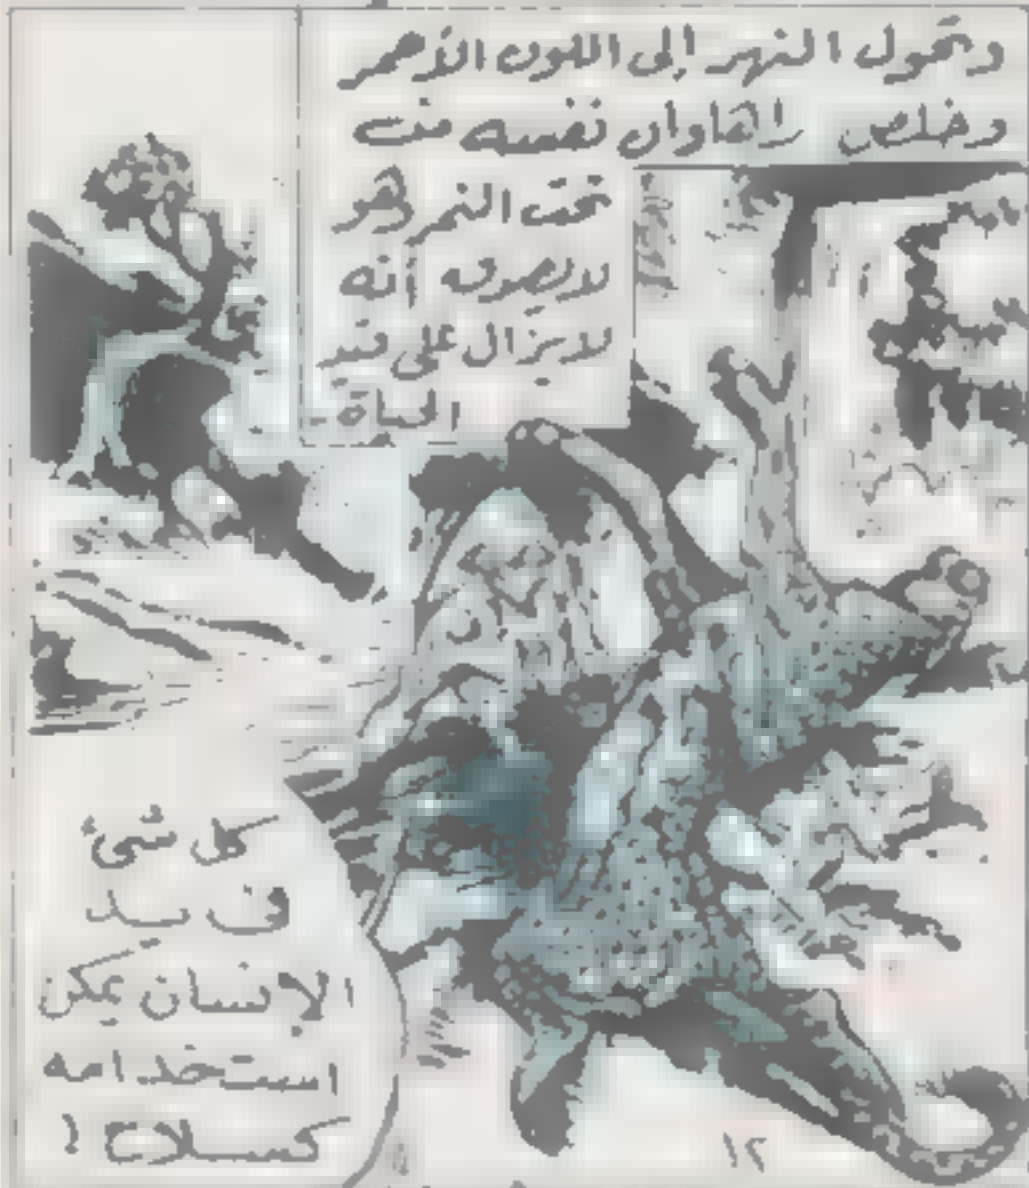 وتحول النهر إلى اللون الأحمر
وخلص راهاوان نفسه من
تحت النمر وهو
لا يصدق أنه
لا يزال على قيد
الحياة
كل شئ
فى يد
الإنسان يمكن
استخدامه
كسلاح !
١٢